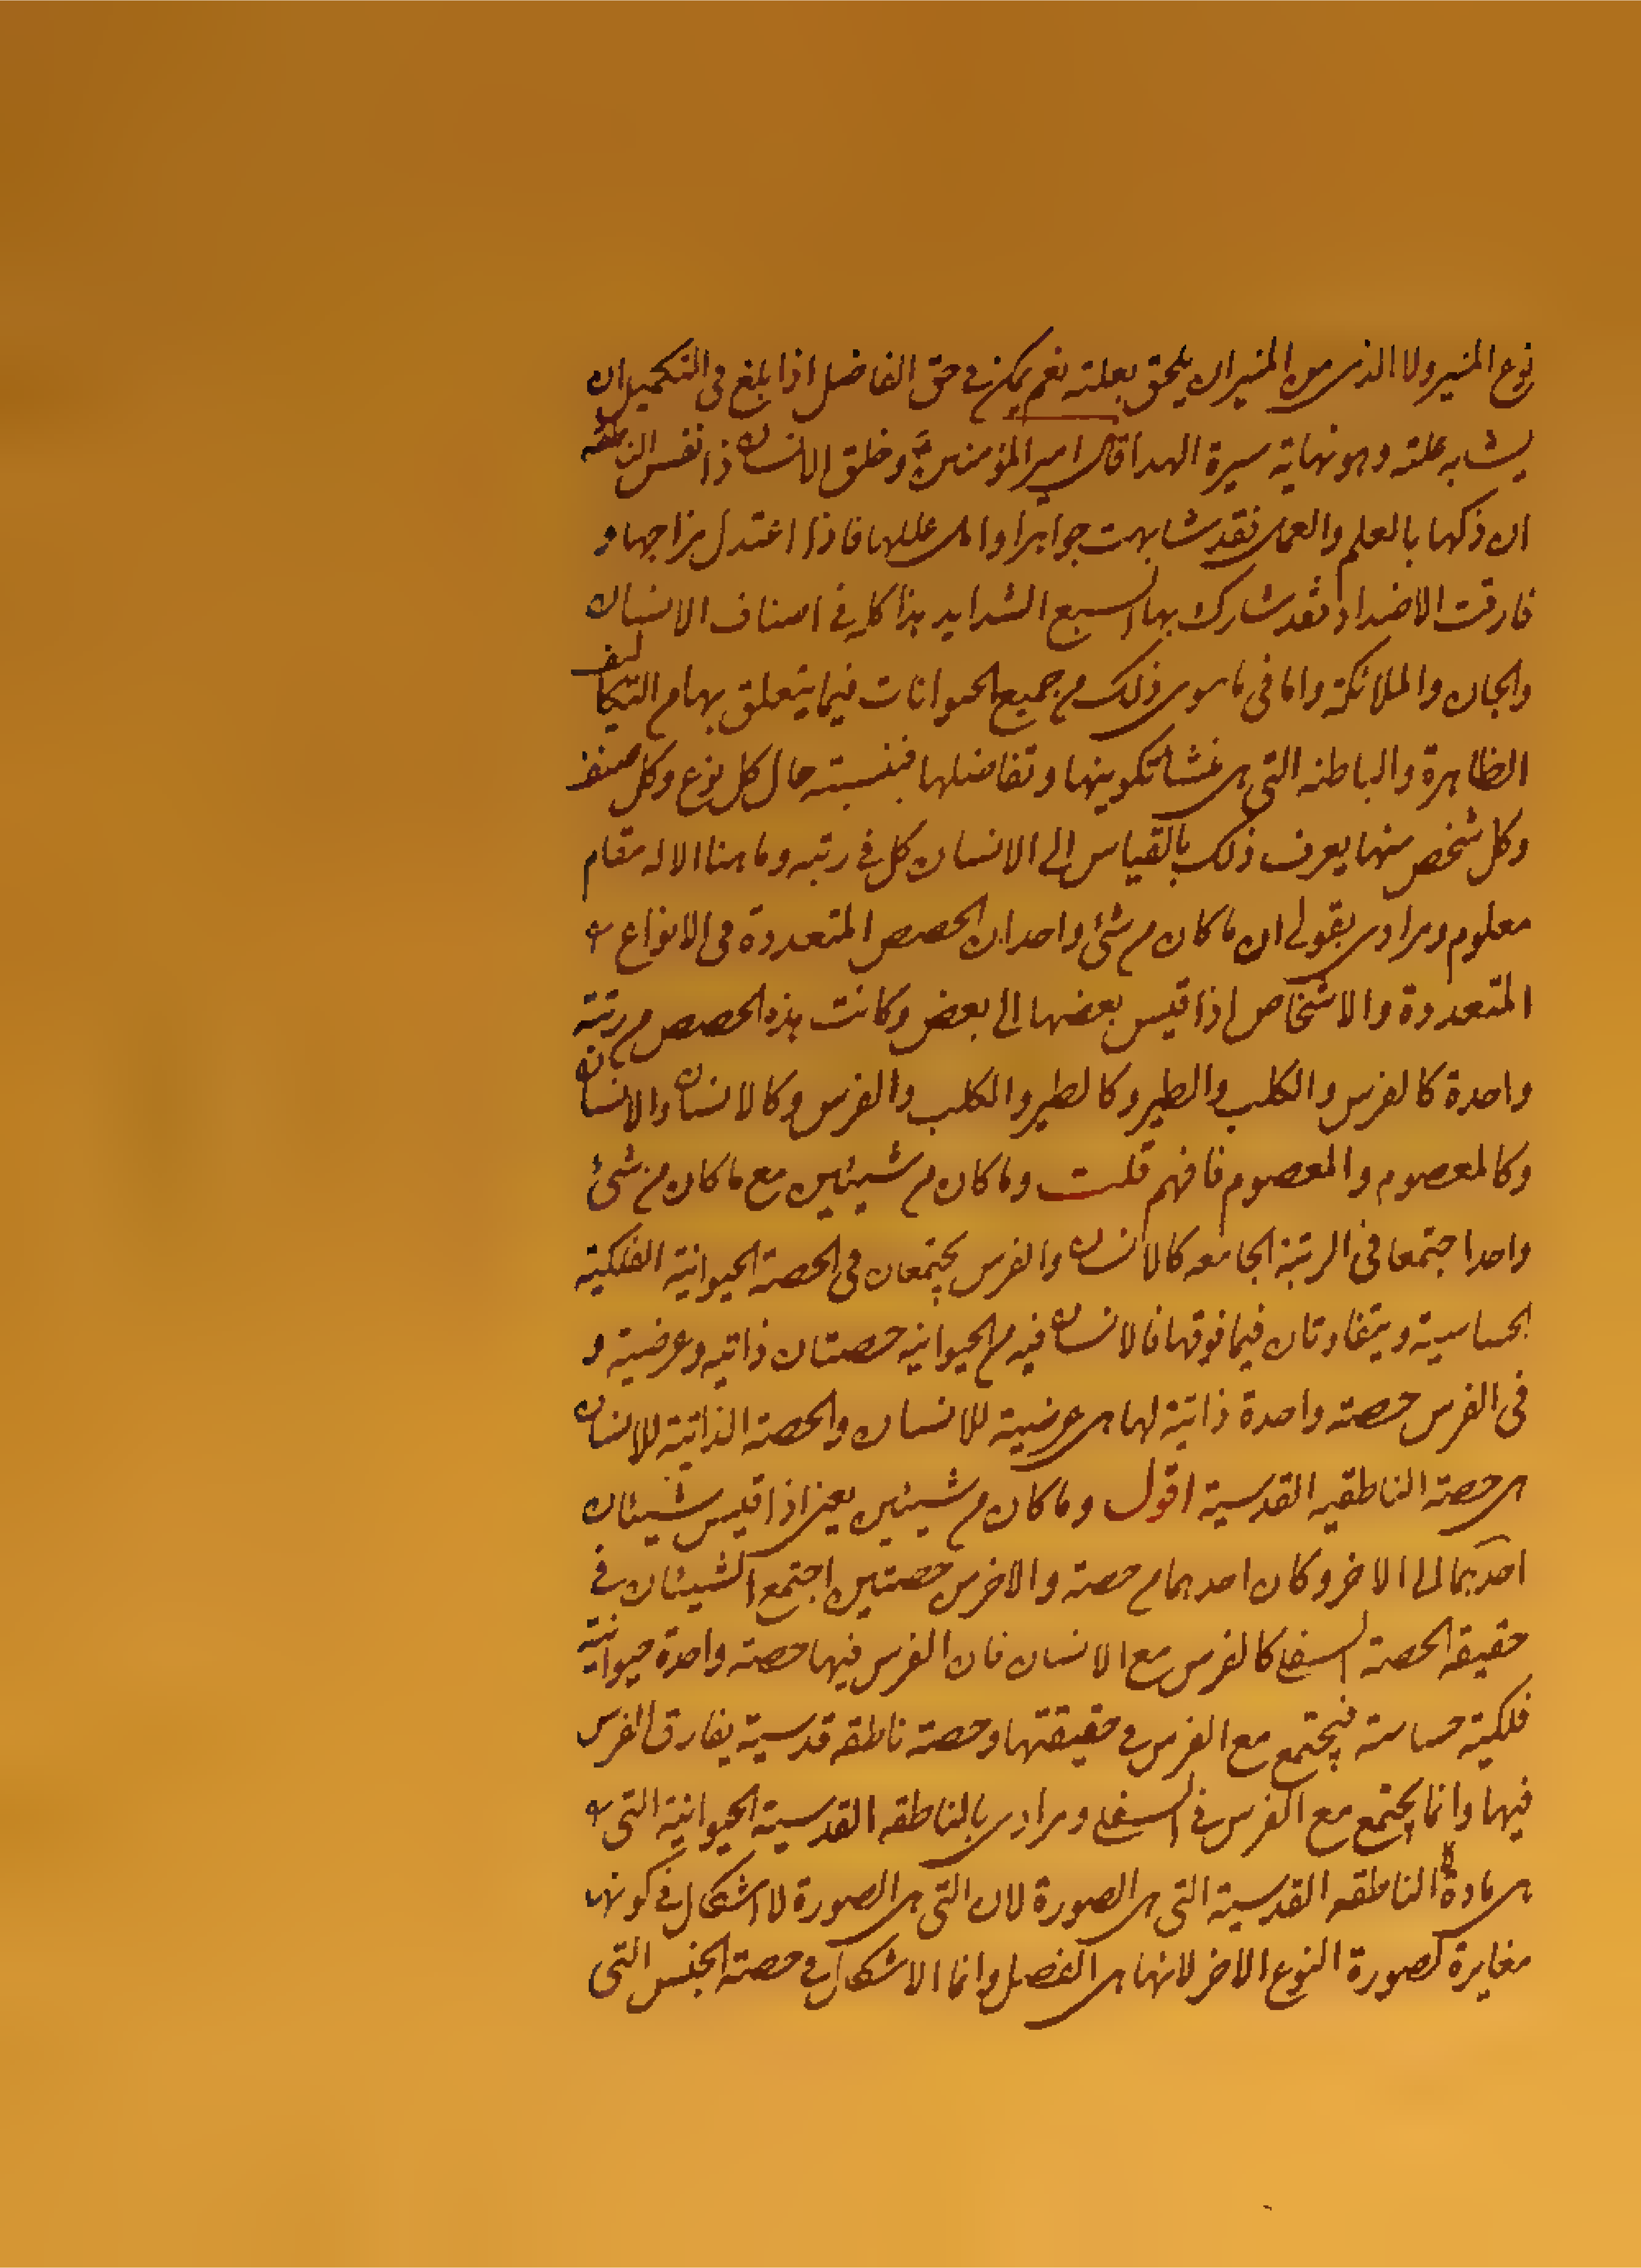 نوع المنير ولا الذي من المنير ان يلحق بعلته نعم يمكن في حق الفاضل اذا بلغ في التكميل ان
يشابه علته وهو نهاية سيرة الهدا قال امير المؤمنين ع وخلق الانسان ذا نفس الناطقه
ان زكها بالعلم والعمل فقد شابهت جواهر اوائل عللها فاذا اعتدل مزاجها و
فارقت الاضداد فقد شارك بها السبع الشدايد هذا كله في اصناف الانسان
والجان والملائكة واما في ما سوى ذلك من جميع الحيوانات فيما يتعلق بها من التكاليف
الظاهرة والباطنه التي هي منشا تكوينها وتفاضلها فبنسبته حال كل نوع وكل صنف
وكل شخص منها يعرف ذلك بالقياس الى الانسان كل في رتبه وما منا الا له مقام
معلوم ومرادى بقولى ان ما كان من شئ واحد ان الحصص المتعددة في الانواع
المتعددة والاشخاص اذا قيس بعضها الى بعض وكانت هذه الحصص من رتبة
واحدة كالفرس والكلب والطير وكالطير والكلب والفرس وكالانسان والانسان
وكالمعصوم والمعصوم فافهم قلت وما كان من شيئين مع ما كان من شئ
واحد اجتمعا في الرتبة الجامعه كالانسان والفرس يجتمعان في الحصة الحيوانية الفلكية
الحساسية ويتفاوتان فيما فوقها فالانسان فيه من الحيوانيه حصتان ذاتيه وعرضية و
في الفرس حصته واحدة ذاتية لها هي عرضية للانسان والحصة الذاتية للانسان
هي حصة الناطقيه القدسية اقول وما كان من شيئين يعنى اذا قيس شيئان
احدهما الى الاخر وكان احدهما من حصة والاخر من حصتين اجتمع الشيئان في
حقيقه الحصة السفلى كالفرس مع الانسان فان الفرس فيها حصته واحدة حيوانية
فلكية حساسة فيجتمع مع الفرس في حقيقتها وحصة ناطقه قدسية يفارق الفرس
فيها وانما يجتمع مع الفرس في السفلى ومرادى بالناطقه القدسية الحيوانية التي
هي مادة الناطقه القدسية التي هي الصورة لان التي هي الصورة لا اشكال في كونها
مغايرة لصورة النوع الاخر لانها هي الفصل وانما الاشكال في حصته الجنس التى